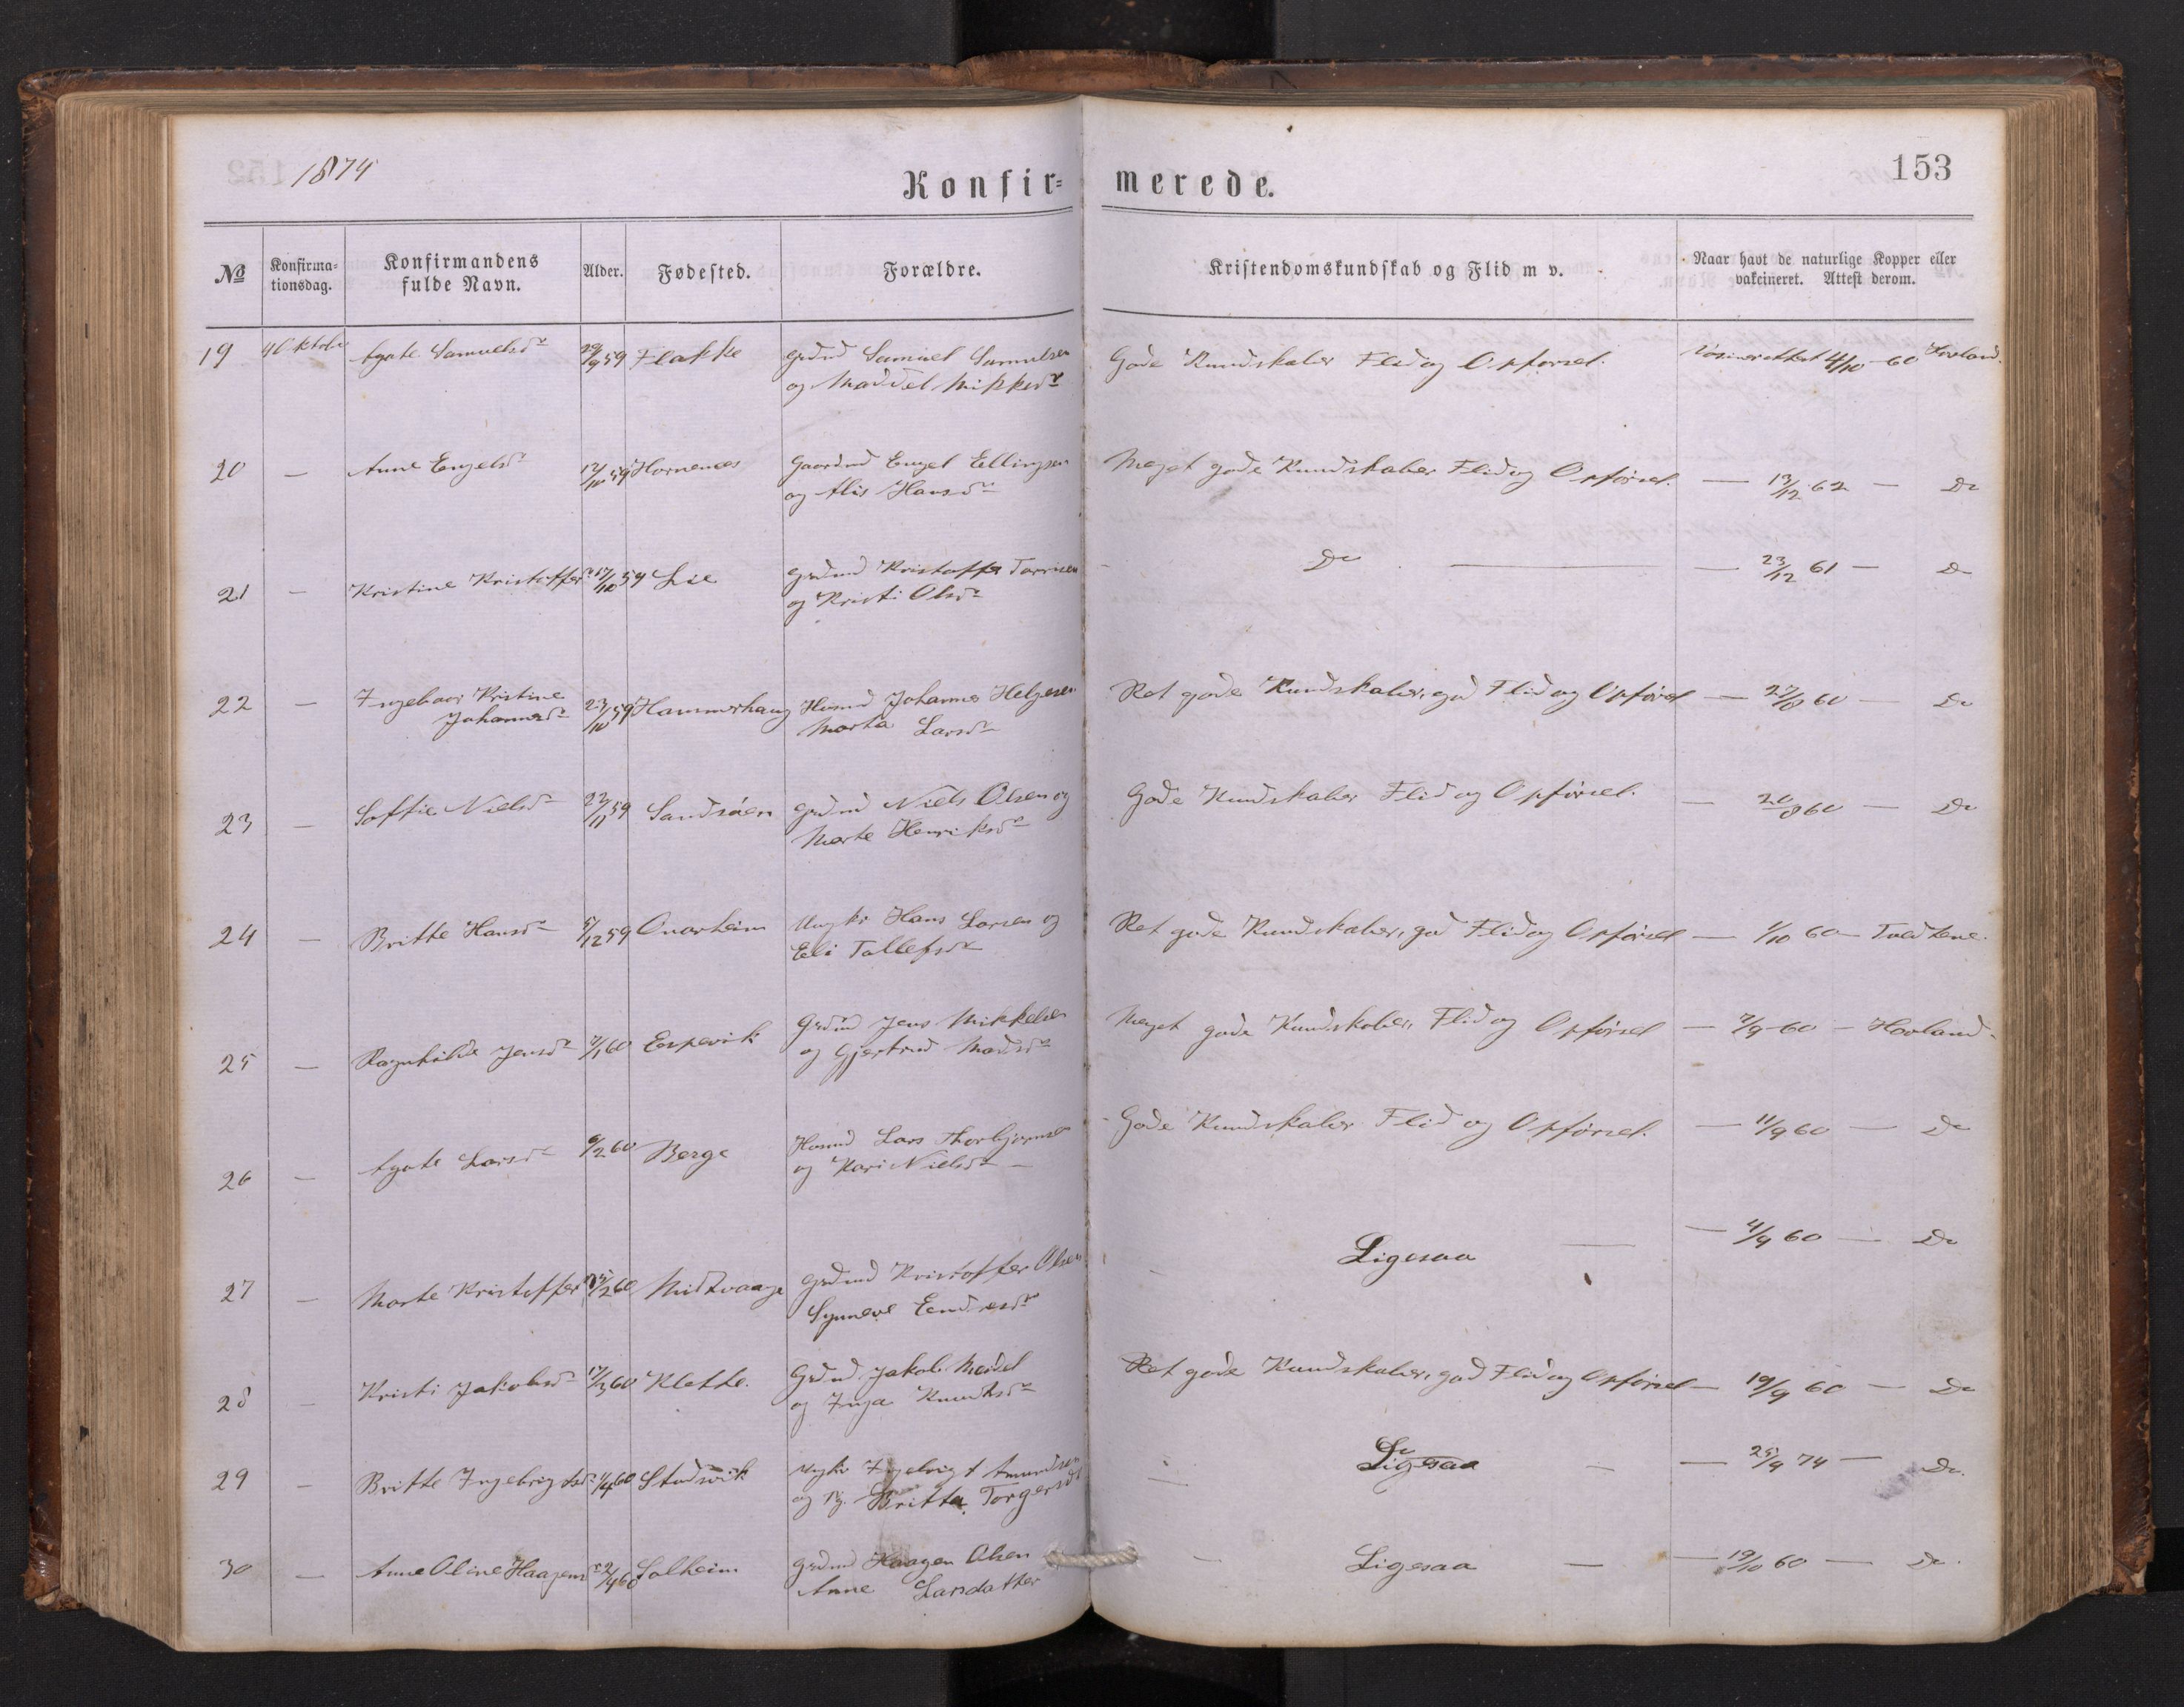 1874
Konfir= merede.
153
No Konfirma= tionsdag. Konfirmandens fulde Navn. Alder. Fødested. Forældre. Kristendomskundskab og Flid m v. Naar havt de naturlige Kopper eller vakcineret. Attest derom.
19 4 Oktober Agate Samuelsdr 29/9 59 Flakke Grdmd Samuel Samuelsen Gode Kundskaber Flid og Opførsel. 4/10 60 Hovland.
og Maddel Mikkelsdr
20 — Anne Engelsdr 12/10 59 Hornenes Gaardmd Engel Ellingsen Meget gode Kundskaber Flid og Opførsel. — 13/12 62 — Do
og Alis Hansdr
21 — Kristine Kristoffersdr 17/10 59 Lie Grdmd Kristoffer Torrisen Do — 23/12 61 — Do
og Kristi Olsdr
22 — Ingeborg Kristine 23/10 59 Hammerhaug Husmd Johannes Helgesen Ret gode Kundskaber, god Flid og Opførsel — 27/8 60 — Do
Johannesdr Marta Larsdr
23 — Soffie Nielsdr 22/11 59 Sandsøen Grdmd Niels Olsen og Gode Kundskaber Flid og Opførsel. — 20/8 60 — Do
Marte Henriksdr
24 — Britte Hansdr 5/12 59 Onarheim Ungkr Hans Larsen og Ret gode Kundskaber, god Flid og Opførsel — 1/10 60 — Tvedtene.
Eli Tollefsdr
25 — Ragnhilde Jensdr 7/1 60 Espevik Grdmd Jens Mikkelsen Meget gode Kundskaber, Flid og Opførsel — 7/9 60 — Hovland.
og Gjertrud Madsdr
26 — Agate Larsdr 6/2 60 Berge Husmd Lars Thorbjørnsen Gode Kundskaber Flid og Opførsel. — 11/9 60 — Do
og Kari Nielsdr —
27 — Marte Kristoffersdr 25/2 60 Midtvaage Grdmd Kristoffer Olsen Ligesaa — 4/9 60 — Do
Synneve Endresdr
28 — Kristi Jakobsdr 17/3 60 Klette. Grdmd Jakob Meidel Ret gode Kundskaber, god Flid og Opførsel — 19/9 60 — Do
og Inga Knudtsdr
29 — Britte Ingebrigtsdr 1/4 60 Stadsvik Ungkr Ingebrigt Amundsen Ligesaa — 25/9 74 — Do.
og Pg. Britta Torgersdr
30 — Anne Oline Haagensdr 2/4 60 Solheim Grdmd Haagen Olsen Ligesaa — 19/10 60 — Do.
Anne Larsdatter